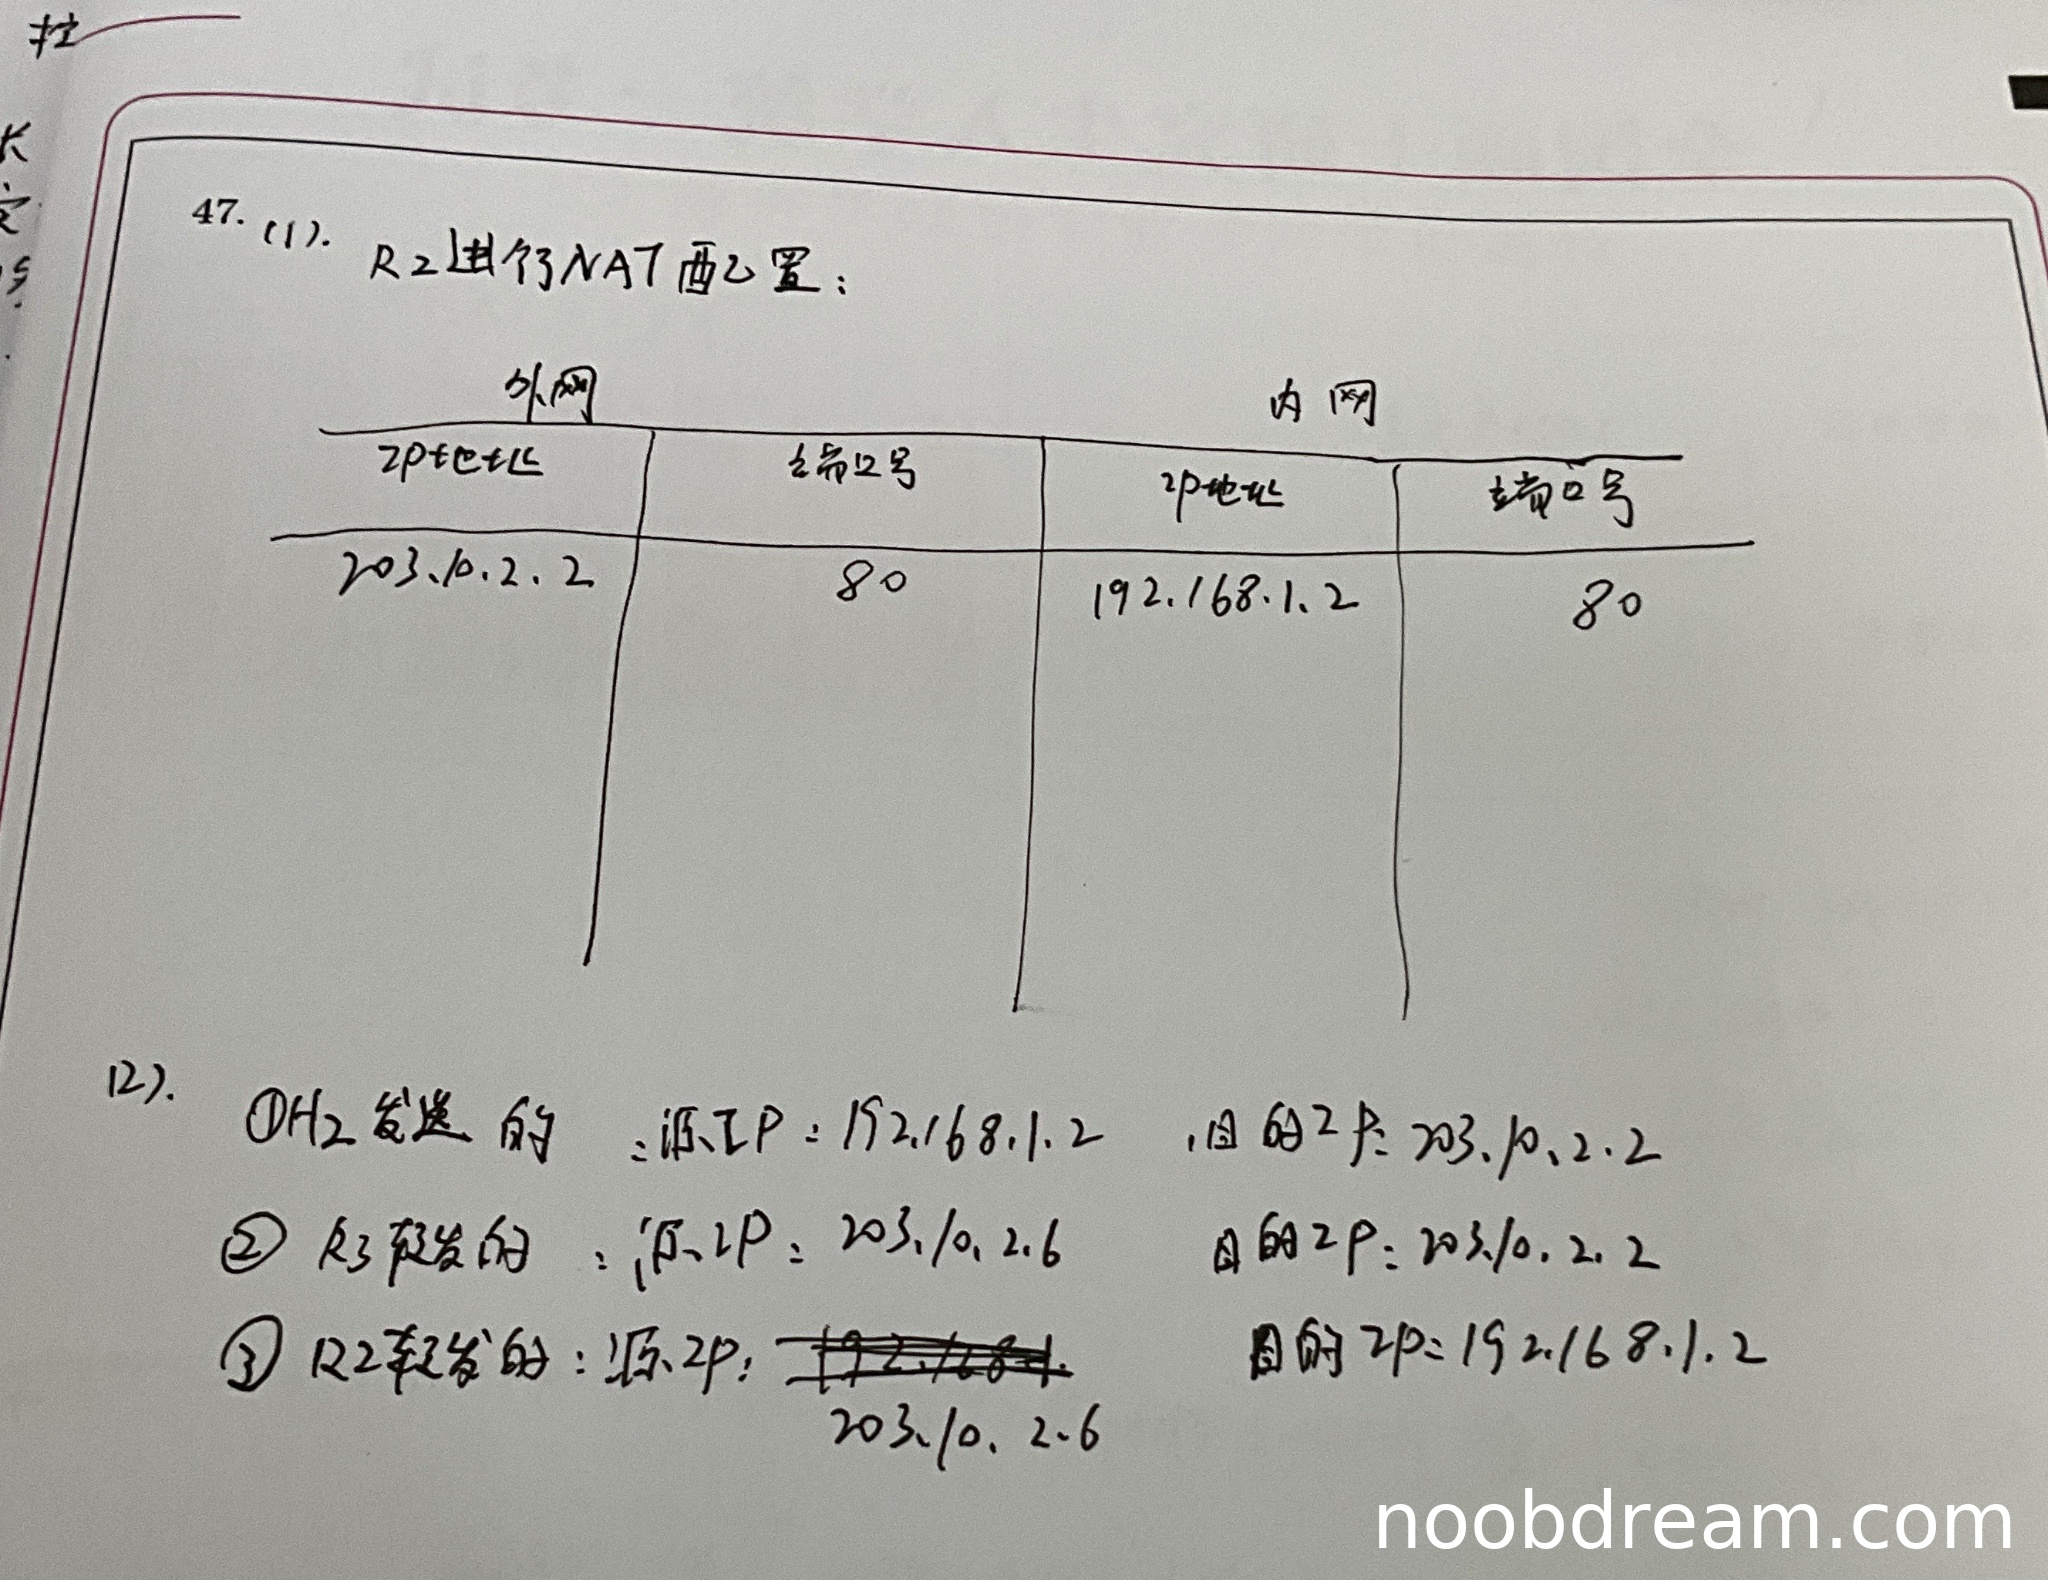 拄
47. (1). R2进行NAT配置:
外网 内网
IP地址 端口号 IP地址 端口号
203.10.2.2 80 192.168.1.2 80
(2).
①H2发送的 :源IP:192.168.1.2 ,目的IP:203.10.2.2
② R3转发的 :源IP:203.10.2.6 目的IP:203.10.2.2
③ R2转发的:源IP: 目的IP:192.168.1.2
203.10.2.6
noobdream.com